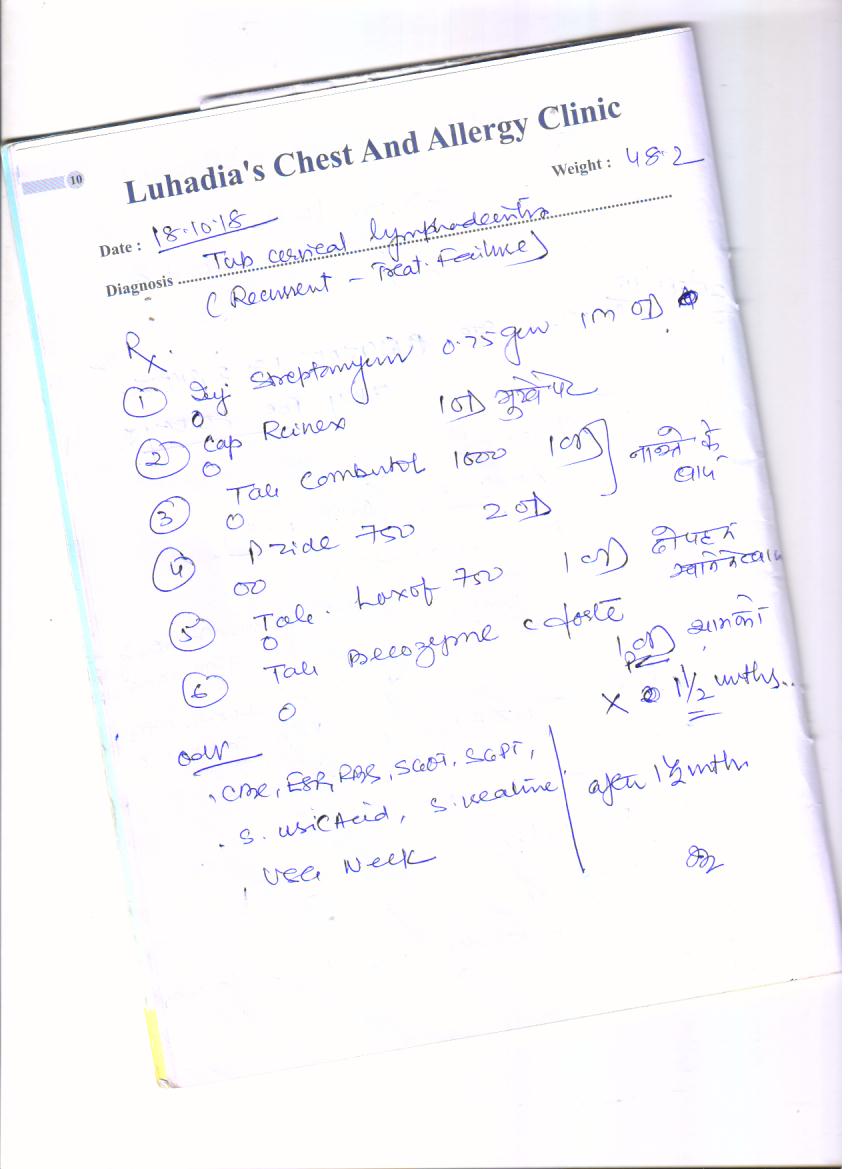 10
Luhadia's Chest And Allergy Clinic
Weight : 48.2
Date : 18.10.18
Diagnosis Tub cervical lymphadenitis
(Recurrent - Treat. Failure)
Rx.
① Inj Streptomycin 0.75gm IM OD
② Cap Rcinex 1 OD भूखे पेट
③ Tab Combutol 1000 1 OD
नाश्ते के बाद
④ Pzide 750 2 OD
⑤ Tab. Loxof 750 1 OD दोपहर
खाने के बाद
⑥ Tab Becozyme c forte 1 OD शाम को
x 1 1/2 mths..
Adv
CBC, ESR, RBS, SGOT, SGPT,
S. Uric Acid, S. Creatine after 1 1/2 mths
USG Neck